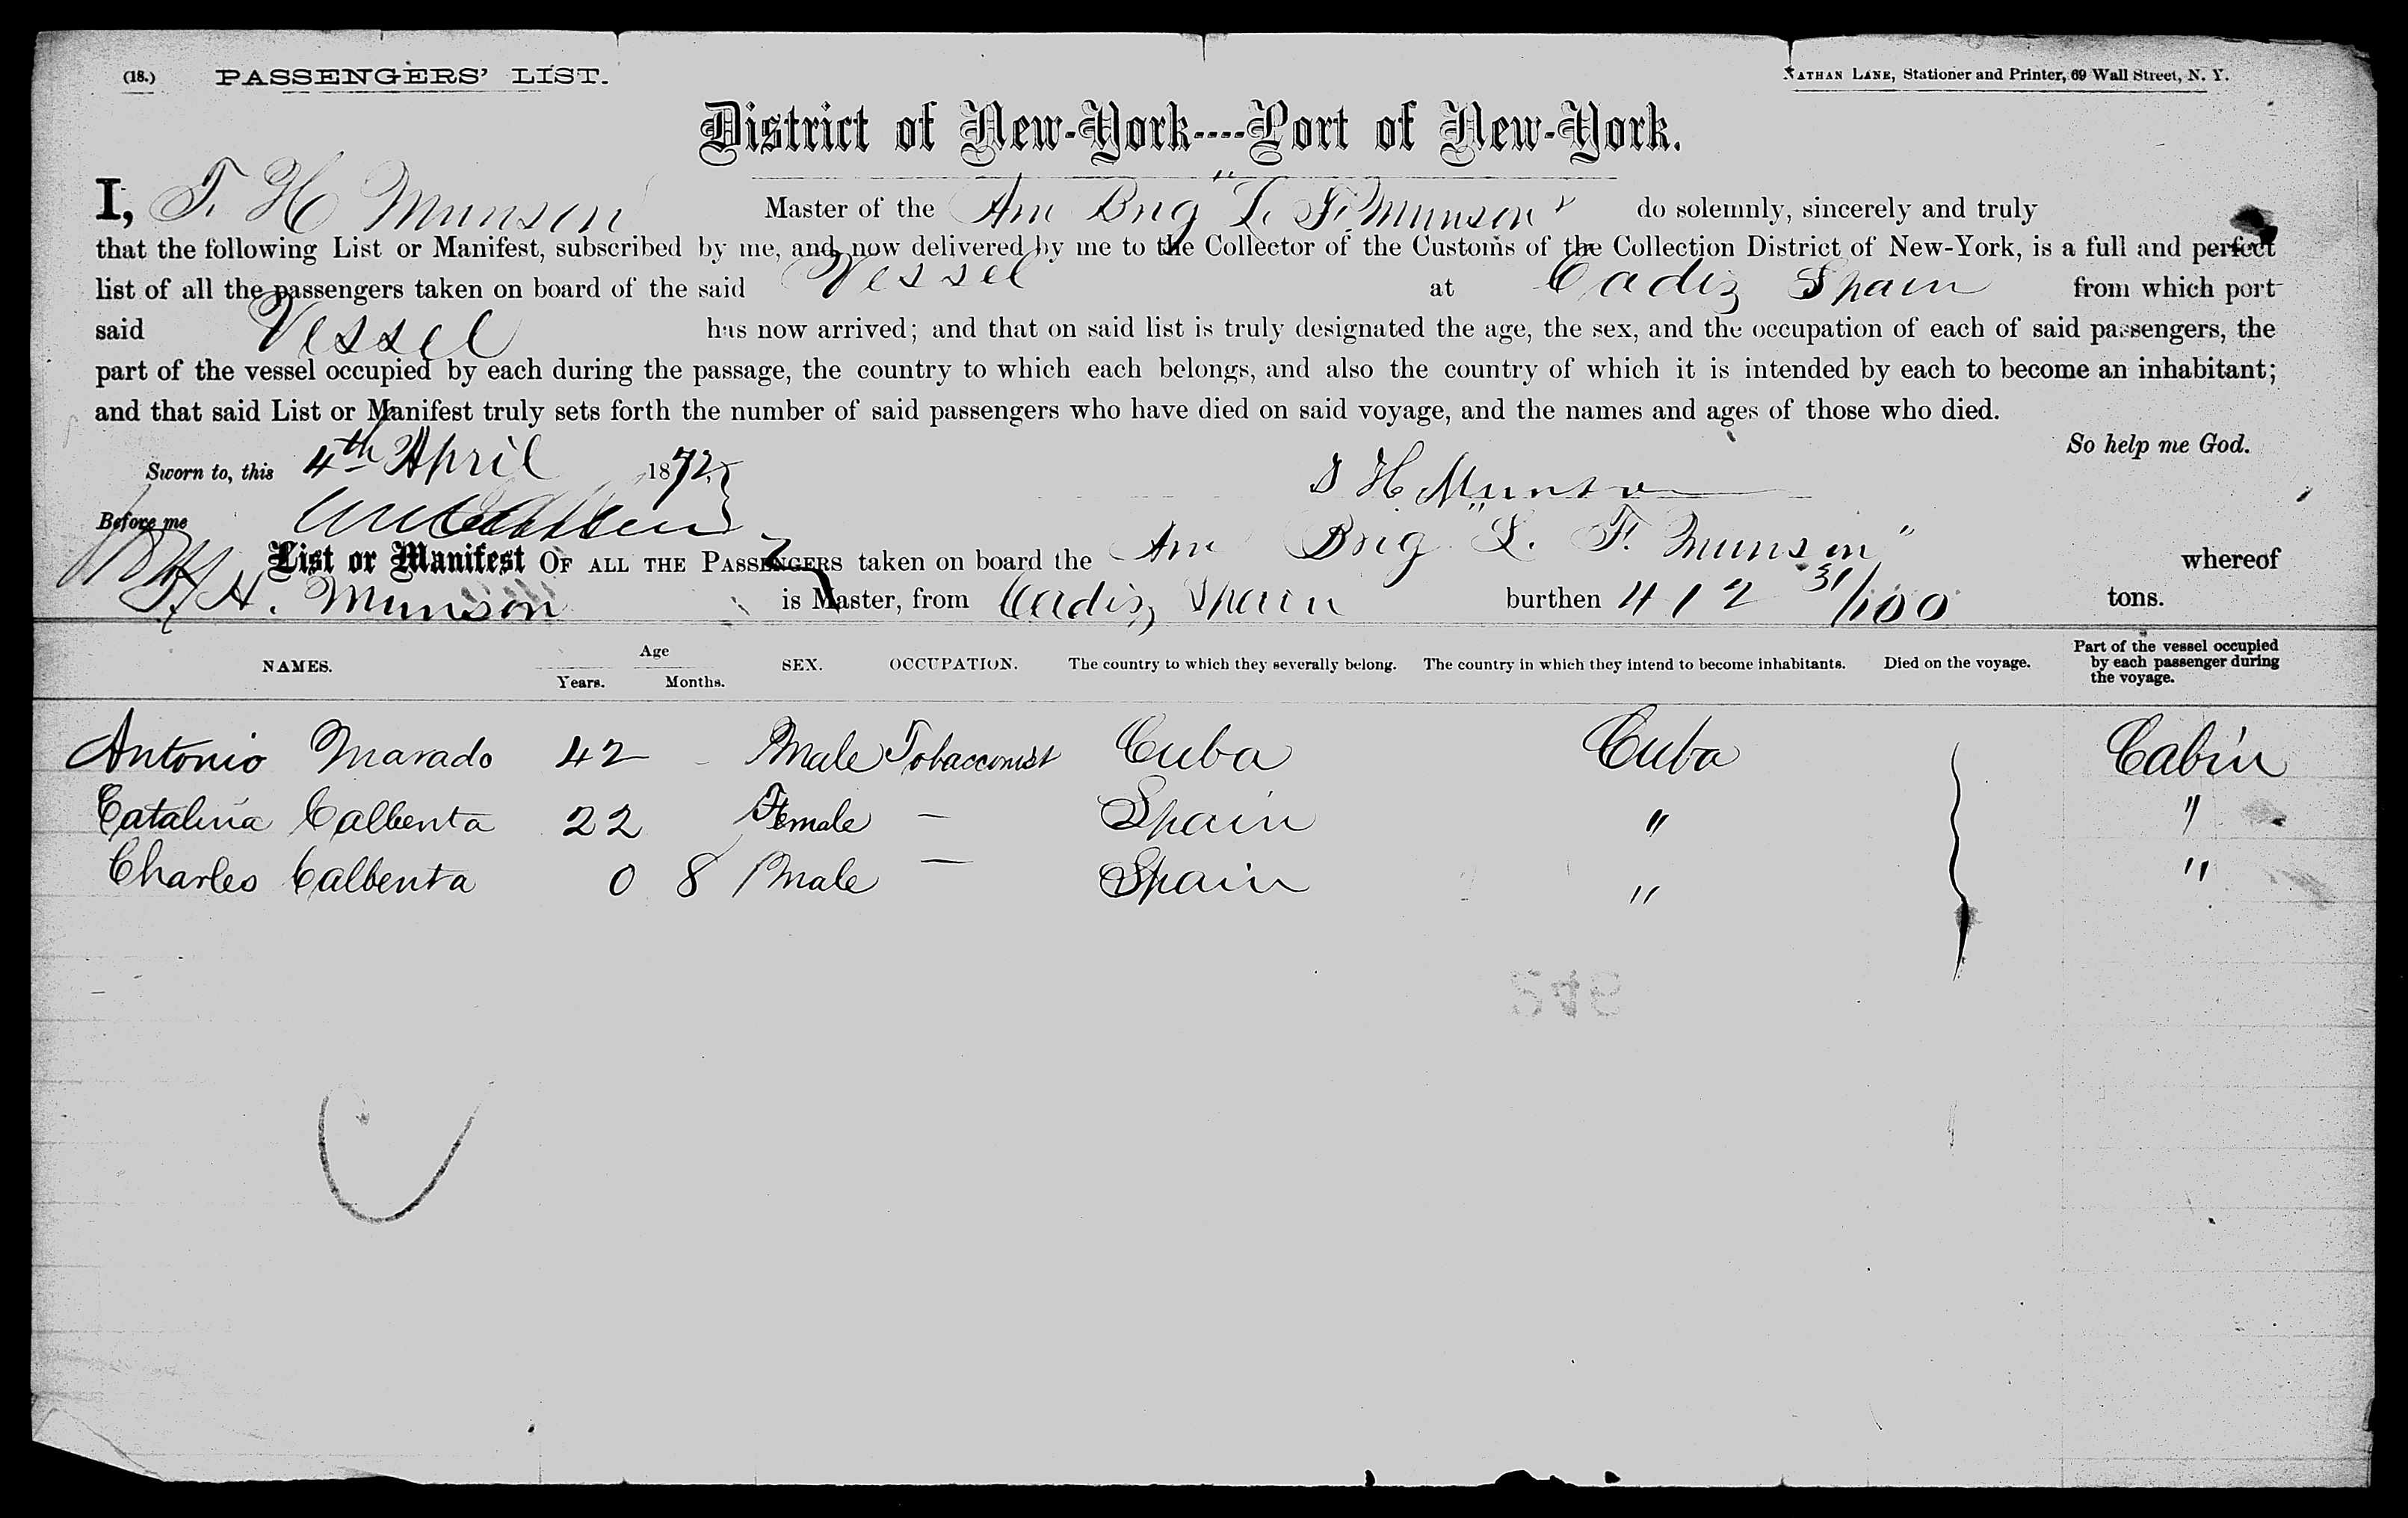 (18.) PASSENGERS' LIST. NATHAN LANE, Stationer and Printer, 69 Wall Street, N. Y.
District of New-York----Port of New-York.
I, T. H Munson Master of the Am Brig "L. F. Munson" do solemnly, sincerely and truly
that the following List or Manifest, subscribed by me, and now delivered by me to the Collector of the Customs of the Collection District of New-York, is a full and perfect
list of all the passengers taken on board of the said Vessel at Cadiz Spain from which port
said Vessel has now arrived; and that on said list is truly designated the age, the sex, and the occupation of each of said passengers, the
part of the vessel occupied by each during the passage, the country to which each belongs, and also the country of which it is intended by each to become an inhabitant;
and that said List or Manifest truly sets forth the number of said passengers who have died on said voyage, and the names and ages of those who died.
So help me God.
Sworn to, this 4th April 1872. H Munson
Before me
List or Manifest OF ALL THE PASSENGERS taken on board the Am Brig "L. F. Munson" whereof
H. Munson is Master, from Cadiz, Spain burthen 412 31/100 tons.
NAMES. Age Years. Months. SEX. OCCUPATION. The country to which they severally belong. The country in which they intend to become inhabitants. Died on the voyage. Part of the vessel occupied by each passenger during the voyage.
Antonio Marado 42 - Male Tobacconist Cuba Cuba Cabin
Catalina Calbenta 22 Female — Spain " "
Charles Calbenta 0 8 Male — Spain " "